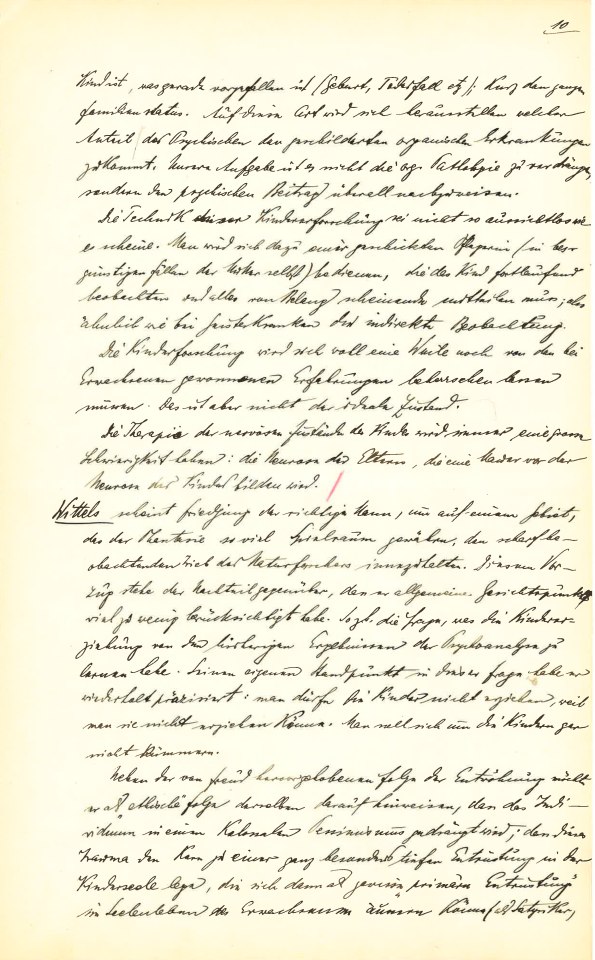 10
Kind ist, was gerade vorgefallen ist (Geburt, Todesfall etz); Kurz den ganzen
familienstatus. Auf diese Art wird sich herausstellen welcher
Anteil des Psychischen den geschilderten organischen Erkrankungen
zukommt. Unsere Aufgabe ist es nicht die org. Pathologie zu verdrängen,
sondern den psychischen Beitrag überall nachzuweisen.
Die Technik dieser Kindererforschung sei nicht so aussichtlos wie
es scheine. Man wird sich dazu einer geschickten Pflegerin (in bes.
günstigen fällen der Mutter selbst) bedienen, die das Kind fortlaufend
beobachten und alles von Belang scheinende mitteilen muss; also
ähnlich wie bei Geisteskranken die indirekte Beobachtung.
Die Kinderforschung wird sich wohl eine Weile noch von den bei
Erwachsenen gewonnenen Erfahrungen beherrschen lassen
müssen. Das ist aber nicht der ideale Zustand.
Die Therapie der nervösen Zustände der Kinder wird immer eine grosse
Schwierigkeit haben: die Neurose der Eltern, die eine Mauer vor der
Neurose des Kindes bilden wird.
Wittels scheint friedjung der richtige Mann, um auf einem Gebiet,
das der Phantasie so viel Spielraum gewähre, den scharf be-
obachtenden Blick des Naturforschers innezuhalten. Diesem Vor-
zug stehe der Nachteil gegenüber, dass er allgemeine Gesichtspunkte
viel zu wenig berücksichtigt habe. So z.B. die frage, was die Kinderer-
ziehung von den bisherigen Ergebnissen der Psychoanalyse zu
lernen habe. Seinen eigenen Standpunkt in dieser frage habe er
wiederholt präzisiert: man dürfe die Kinder nicht erziehen, weil
man sie nicht erziehen könne. Man soll sich um die Kinder gar
nicht kümmern.
Neben der von freud hervorgehobenen folge der Entwöhnung möchte
er als "ethische" folge derselben darauf hinweisen, dass das Indi-
viduum in einen kolossalen Pessimismus gedrängt wird; dass dieses
Trauma den Kern zu einer ganz besonders tiefen Entrüstung in der
Kinderseele lege, die sich dann als gewisse "primäre Entrüstung"
im Seelenleben des Erwachsenen äussern könne (als Satyriker,